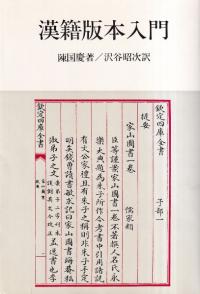 漢籍版本入門
陳国慶著／沢谷昭次訳
欽定四庫全書
子部一
提要
儒家類
家山圖書一卷
臣等謹案家山圖書一卷不著撰人名氏永
樂大典題為朱子所作今考書中引用諸説
有文公家禮且有朱子之稱則非朱子手定
明矣錢曽讀書敏求記曰家山圖書晦菴私
淑弟子之文
欽定四庫全書